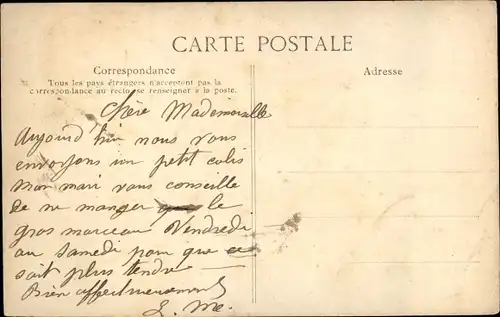 CARTE POSTALE
Correspondance
Tous les pays étrangers n'acceptent pas la
correspondance au recto se renseigner à la poste.
Adresse
Chère Mademoiselle
Aujourd'hui nous vous
envoyons un petit colis
Mon mari vous conseille
de ne manger que le
gros morceau Vendredi
au Samedi pour que ce
soit plus tendre
Bien affectueusement